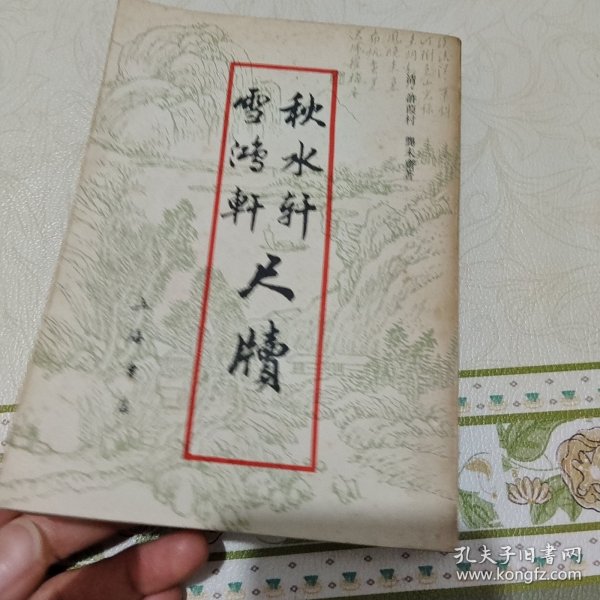 秋水轩
雪鸿軒
尺牘
清·許葭村 龔未齋著
上海書店
孔夫子旧书网
www.kongfz.com